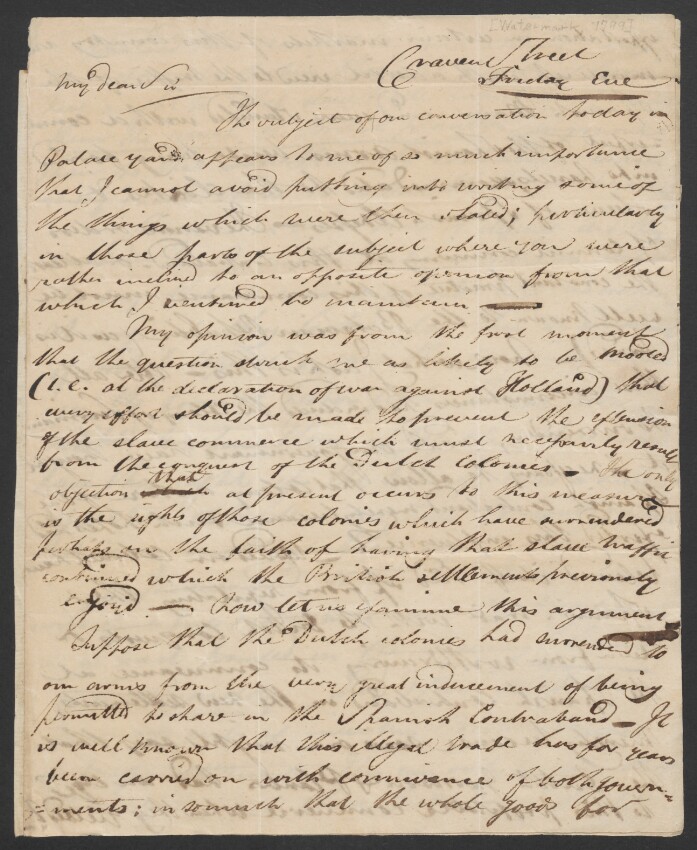 [Watermark 1799]
Craven Street
Friday Eve
My dear Sir
The subject of our conversation today in
Palace yard, appears to me of so much importance
that I cannot avoid putting into writing some of
the things which were then stated; particularly
in those parts of the subject where you were
rather inclined to an opposite opinion from that
which I ventured to maintain —
My opinion was from the first moment
that the question struck me as likely to be mooted
(i.e. at the declaration of war against Holland) that
every effort should be made to prevent the extension
of the slave commerce which must necessarily result
from the conquest of the Dutch colonies — The only
objection that at present occurs to this measure
is the rights of those colonies which have surrendered
perhaps on the faith of having that slave traffic
continued which the British settlements previously
enjoy'd — Now let us examine this argument
Suppose that the Dutch colonies had surrended to
our arms from the very great inducement of being
permitted to share in the Spanish Contraband — It
is well known that this illegal trade has for years
been carried on with connivance of both govern=
=ments; insomuch that the whole goods for